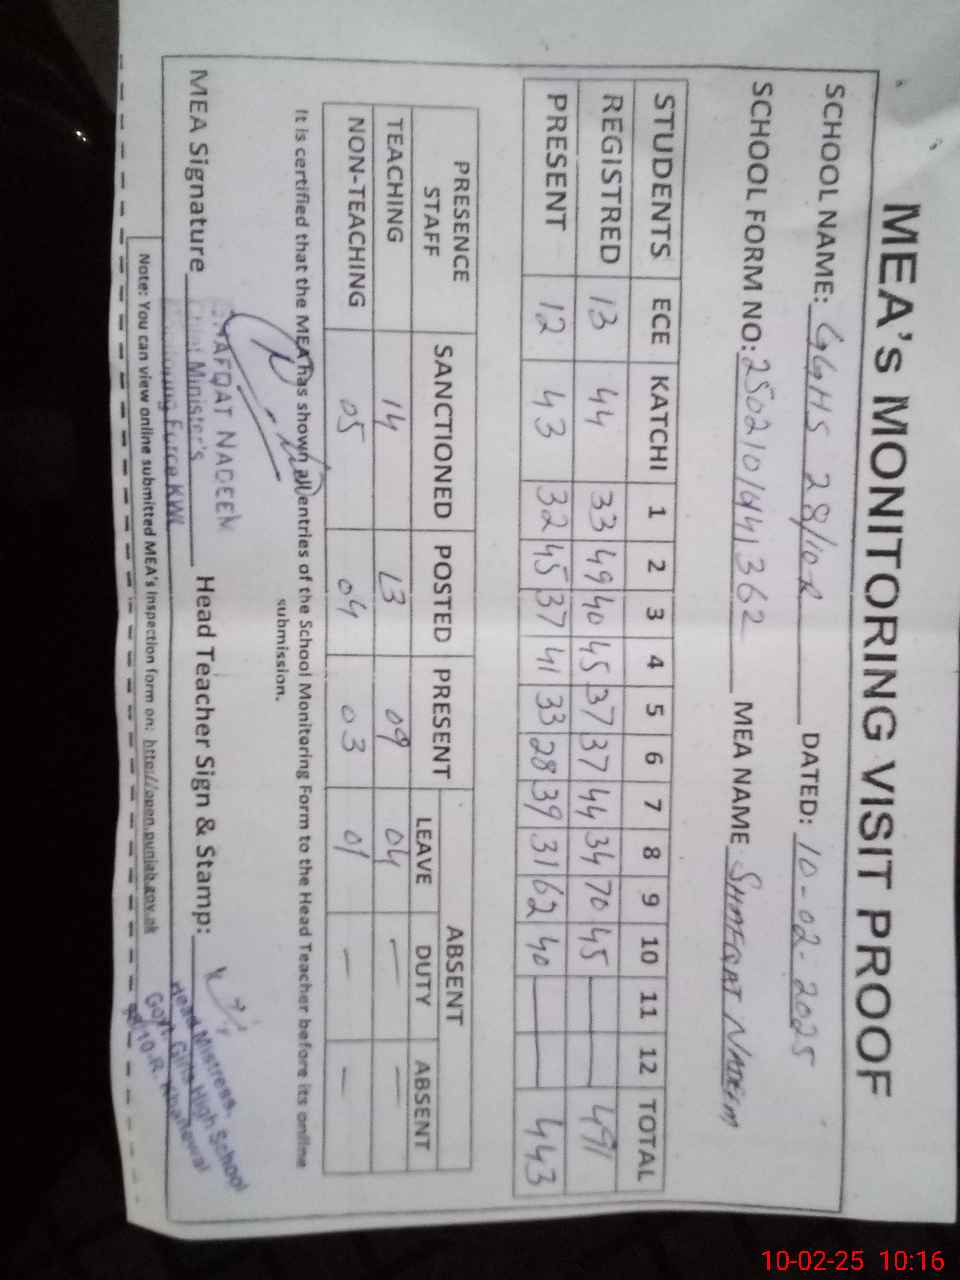 MEA's MONITORING VISIT PROOF
SCHOOL NAME: GGHS 28/10R DATED: 10-02-2025
SCHOOL FORM NO: 250210144 1362 MEA NAME SHAFQAT NADEEM
STUDENTS ECE KATCHI 1 2 3 4 5 6 7 8 9 10 11 12 TOTAL
REGISTRED 13 44 33 49 40 45 37 37 44 34 70 45 — — 491
PRESENT 12 43 32 45 37 41 33 28 39 31 62 40 — — 443
PRESENCE STAFF SANCTIONED POSTED PRESENT ABSENT
LEAVE DUTY ABSENT
TEACHING 14 13 09 04 — —
NON-TEACHING 05 04 03 01 — —
It is certified that the MEA has shown all entries of the School Monitoring Form to the Head Teacher before its online
submission.
SHAFQAT NADEEM
Chief Minister's
Monitoring Force KWL
MEA Signature Head Teacher Sign & Stamp:
Head Mistress,
Govt. Girls High School
28/10-R, Khanewal
Note: You can view online submitted MEA's inspection form on: http://open.punjab.gov.pk
10-02-25 10:16